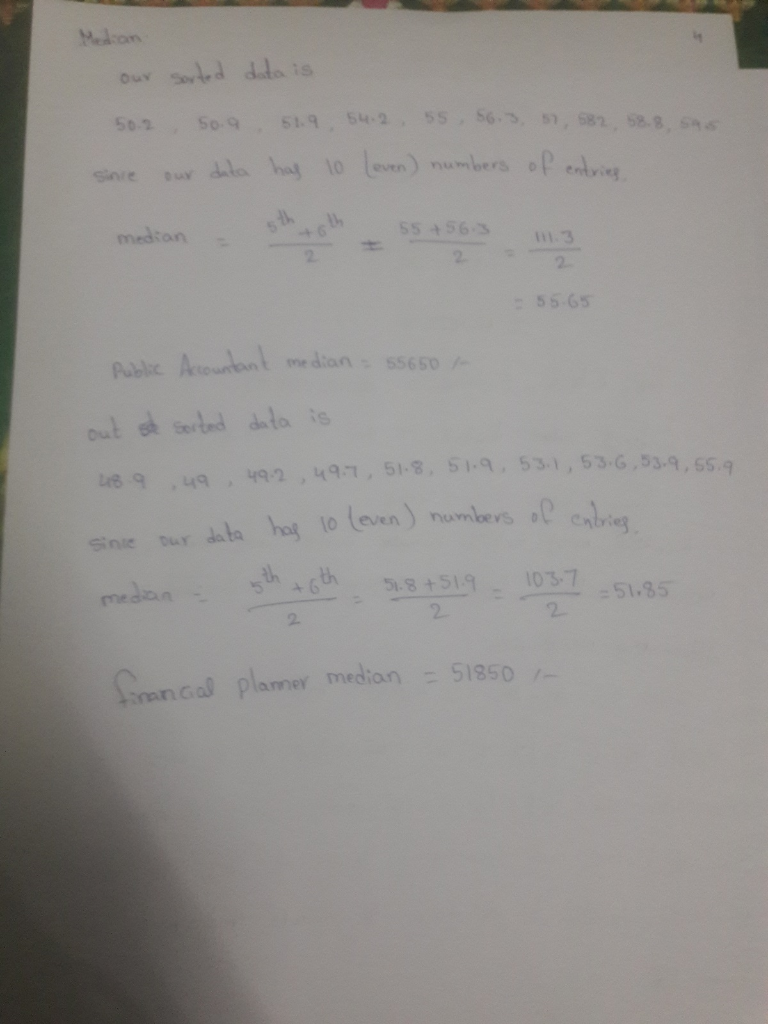 Median
4
our sorted data is
50.2 , 50.9 , 51.9 , 54.2 , 55 , 56.3 , 57 , 582 , 58.8 , 59.5
since our data has 10 (even) numbers of entries.
median = 5th + 6th / 2 = 55 + 56.3 / 2 = 111.3 / 2
= 55.65
Public Accountant median = 55650 /-
out sorted data is
48.9 , 49 , 49.2 , 49.7 , 51.8 , 51.9 , 53.1 , 53.6 , 53.9 , 55.9
since our data has 10 (even) numbers of entries.
median = 5th + 6th / 2 = 51.8 + 51.9 / 2 = 103.7 / 2 = 51.85
financial planner median = 51850 /-